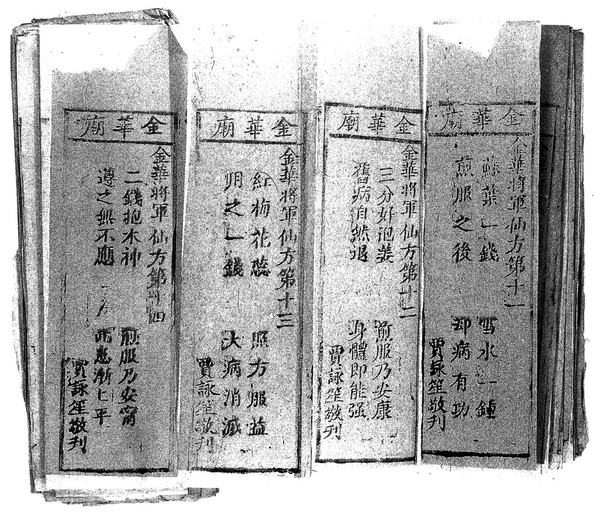 金華廟
金華將軍仙方第十一
蘇葉一錢 雪水一鍾
煎服之後 却病有功
賈詠笙敬刊
金華廟
金華將軍仙方第十二
三分好泡姜 煎服乃安康
舊病自然退 身體即能强
賈詠笙敬刊
金華廟
金華將軍仙方第十三
紅梅花蕊 照方服益
用之一錢 大病消滅
賈詠笙敬刊
金華廟
金華將軍仙方第十四
二錢抱木神 煎服乃安甯
遵之無不應 漸平
賈詠笙敬刊